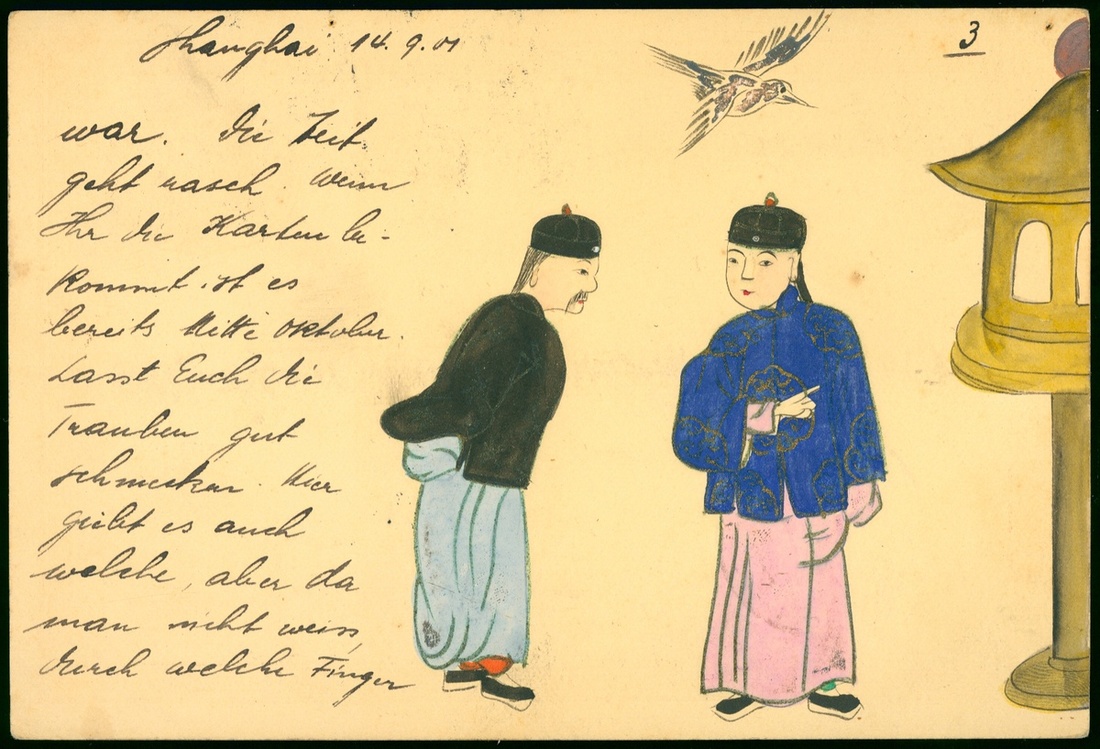 Shanghai 14.9.01
3
war. Die Zeit
geht rasch. Wenn
Ihr die Karten be-
kommt ist es
bereits Mitte Oktober.
Lasst Euch die
Trauben gut
schmecken. Hier
giebt es auch
welche, aber da
man nicht weiss,
durch welche Finger